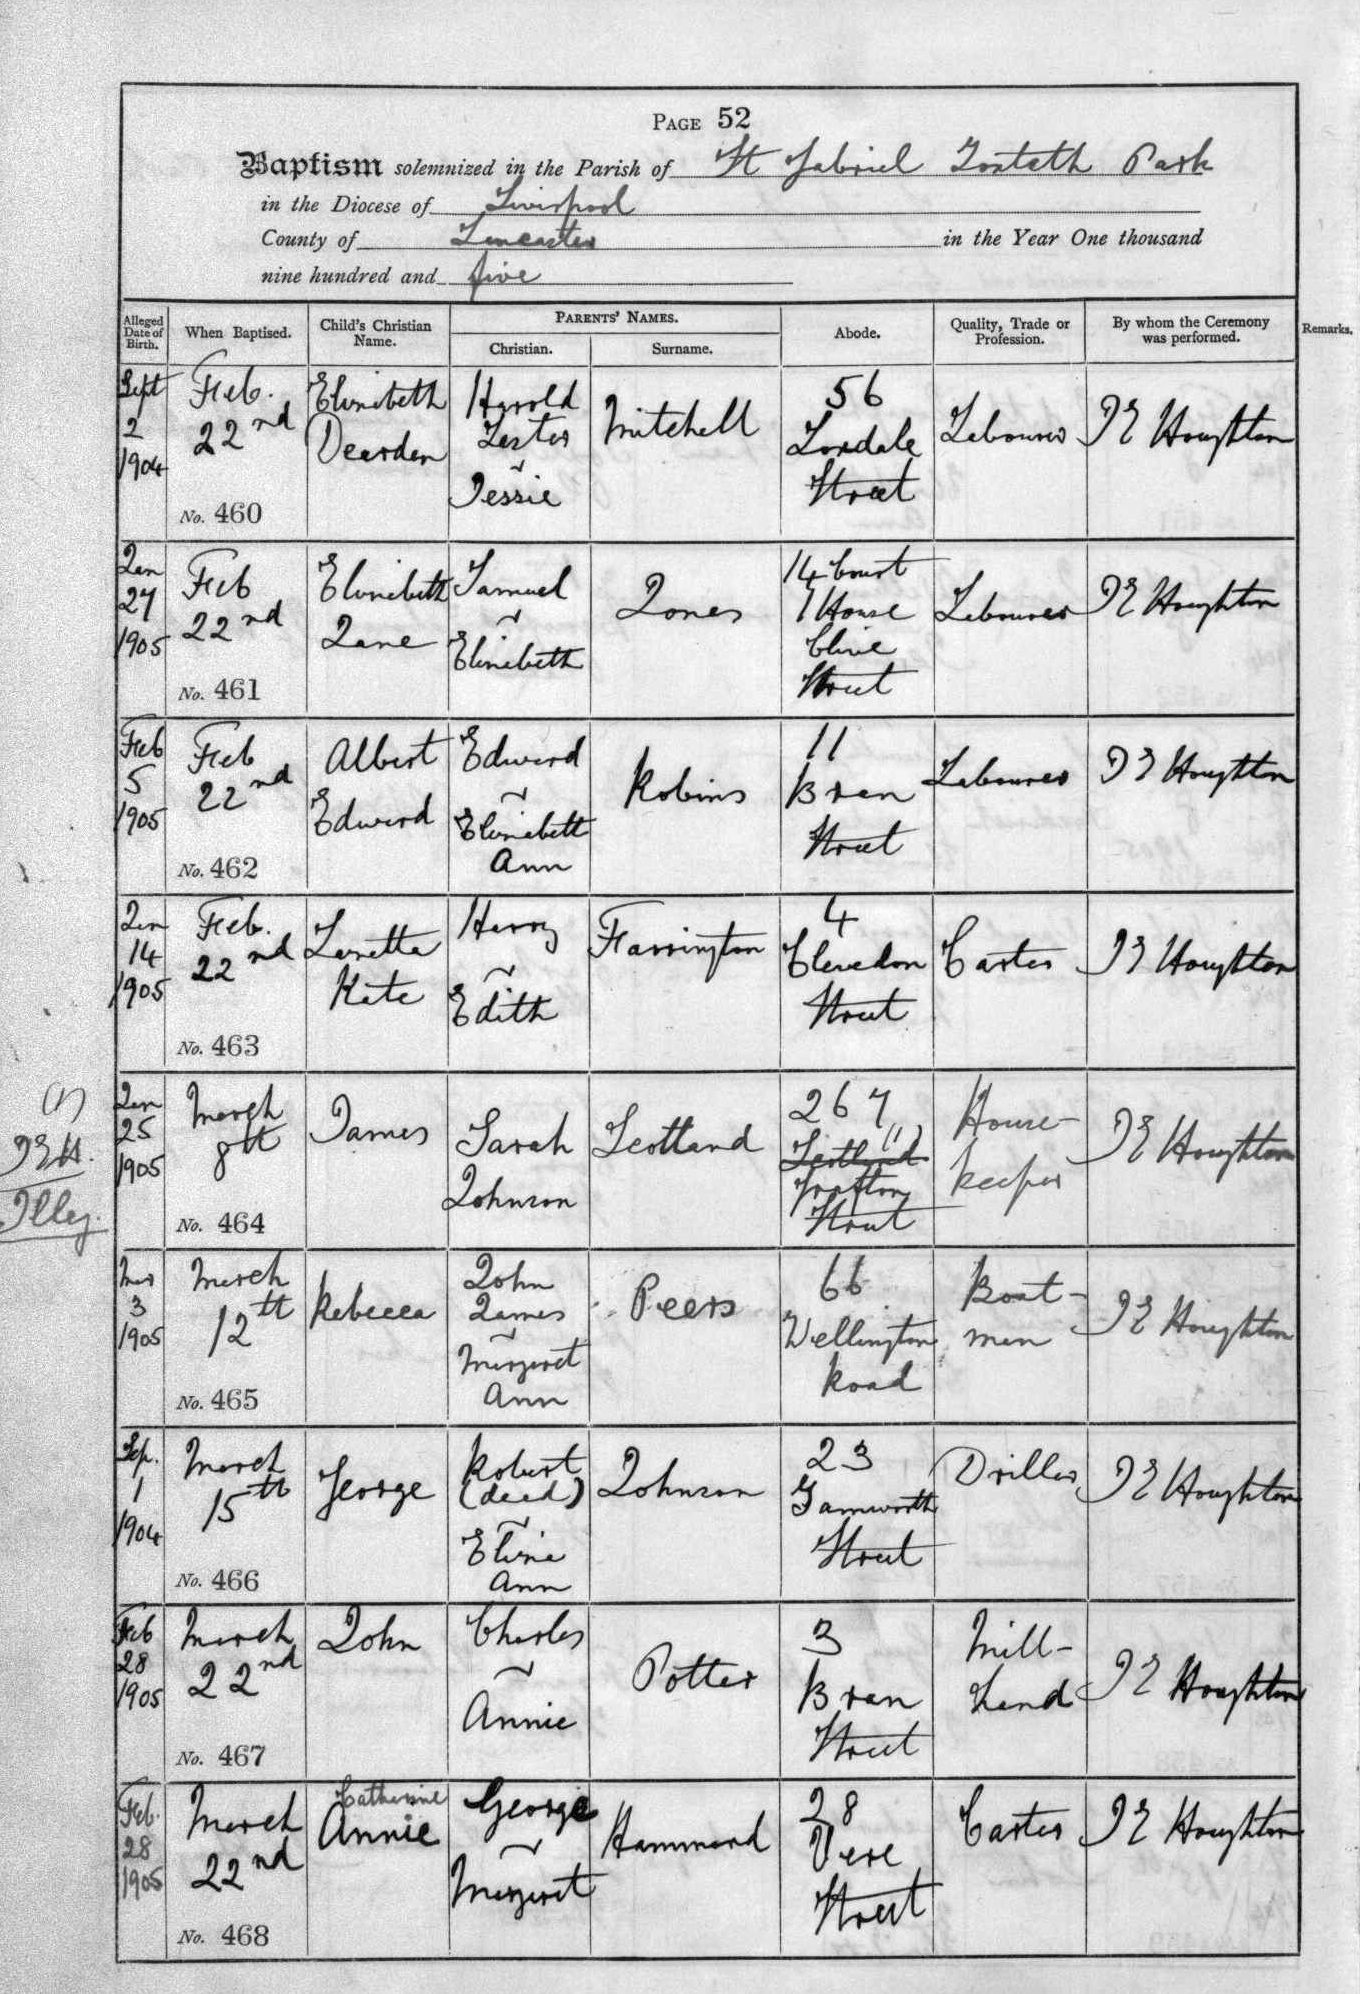 PAGE 52
Baptism solemnized in the Parish of St Gabriel Toxteth Park
in the Diocese of Liverpool
County of Lancaster in the Year One thousand
nine hundred and five
Alleged Date of Birth. When Baptised. Child's Christian Name. PARENTS' NAMES. Christian. Surname. Abode. Quality, Trade or Profession. By whom the Ceremony was performed. Remarks.
Sept 2 1904
Feb. 22nd
No. 460
Elizabeth Dearden
Harold Lester ~ Jessie
Mitchell
56 Lonsdale Street
Labourer
J E Houghton
Jan 27 1905
Feb 22nd
No. 461
Elizabeth Jane
Samuel ~ Elizabeth
Jones
14 Court 7 House Clive Street
Labourer
J E Houghton
Feb 5 1905
Feb 22nd
No. 462
Albert Edward
Edward ~ Elizabeth Ann
Robins
11 Bran Street
Labourer
J E Houghton
Jan 14 1905
Feb. 22nd
No. 463
Loretta Kate
Harry ~ Edith
Farrington
4 Clevedon Street
Carter
J E Houghton
(1) J E H.
Illeg.
Jan 25 1905
March 8th
No. 464
James
Sarah Johnson
Scotland
267 Scotland (1) Grafton Street
House-keeper
J E Houghton
Mar 3 1905
March 12th
No. 465
Rebecca
John James ~ Margaret Ann
Peers
66 Wellington Road
Boat-man
J E Houghton
Sep. 1 1904
March 15th
No. 466
George
Robert (dead) ~ Eliza Ann
Johnson
23 Tamworth Street
Driller
J E Houghton
Feb 28 1905
March 22nd
No. 467
John
Charles ~ Annie
Potter
3 Bran Street
Mill-hand
J E Houghton
Feb. 28 1905
March 22nd
No. 468
Catherine Annie
George ~ Margaret
Hammond
28 Vere Street
Carter
J E Houghton